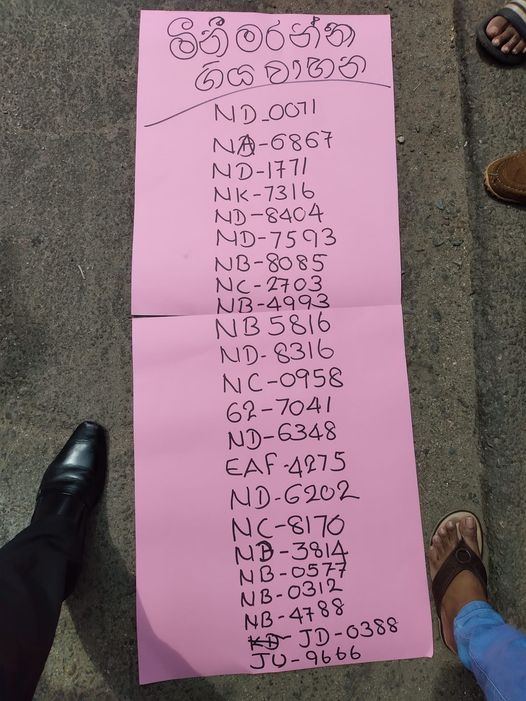 මිනී මරන්න
ගිය වාහන
ND-0071
NA-6867
ND-1771
NK-7316
ND-8404
ND-7593
NB-8085
NC-2703
NB-4993
NB 5816
ND-8316
NC-0958
62-7041
ND-6348
EAF-4275
ND-6202
NC-8170
NB-3814
NB-0577
NB-0312
NB-4788
JD-0388
JU-9666